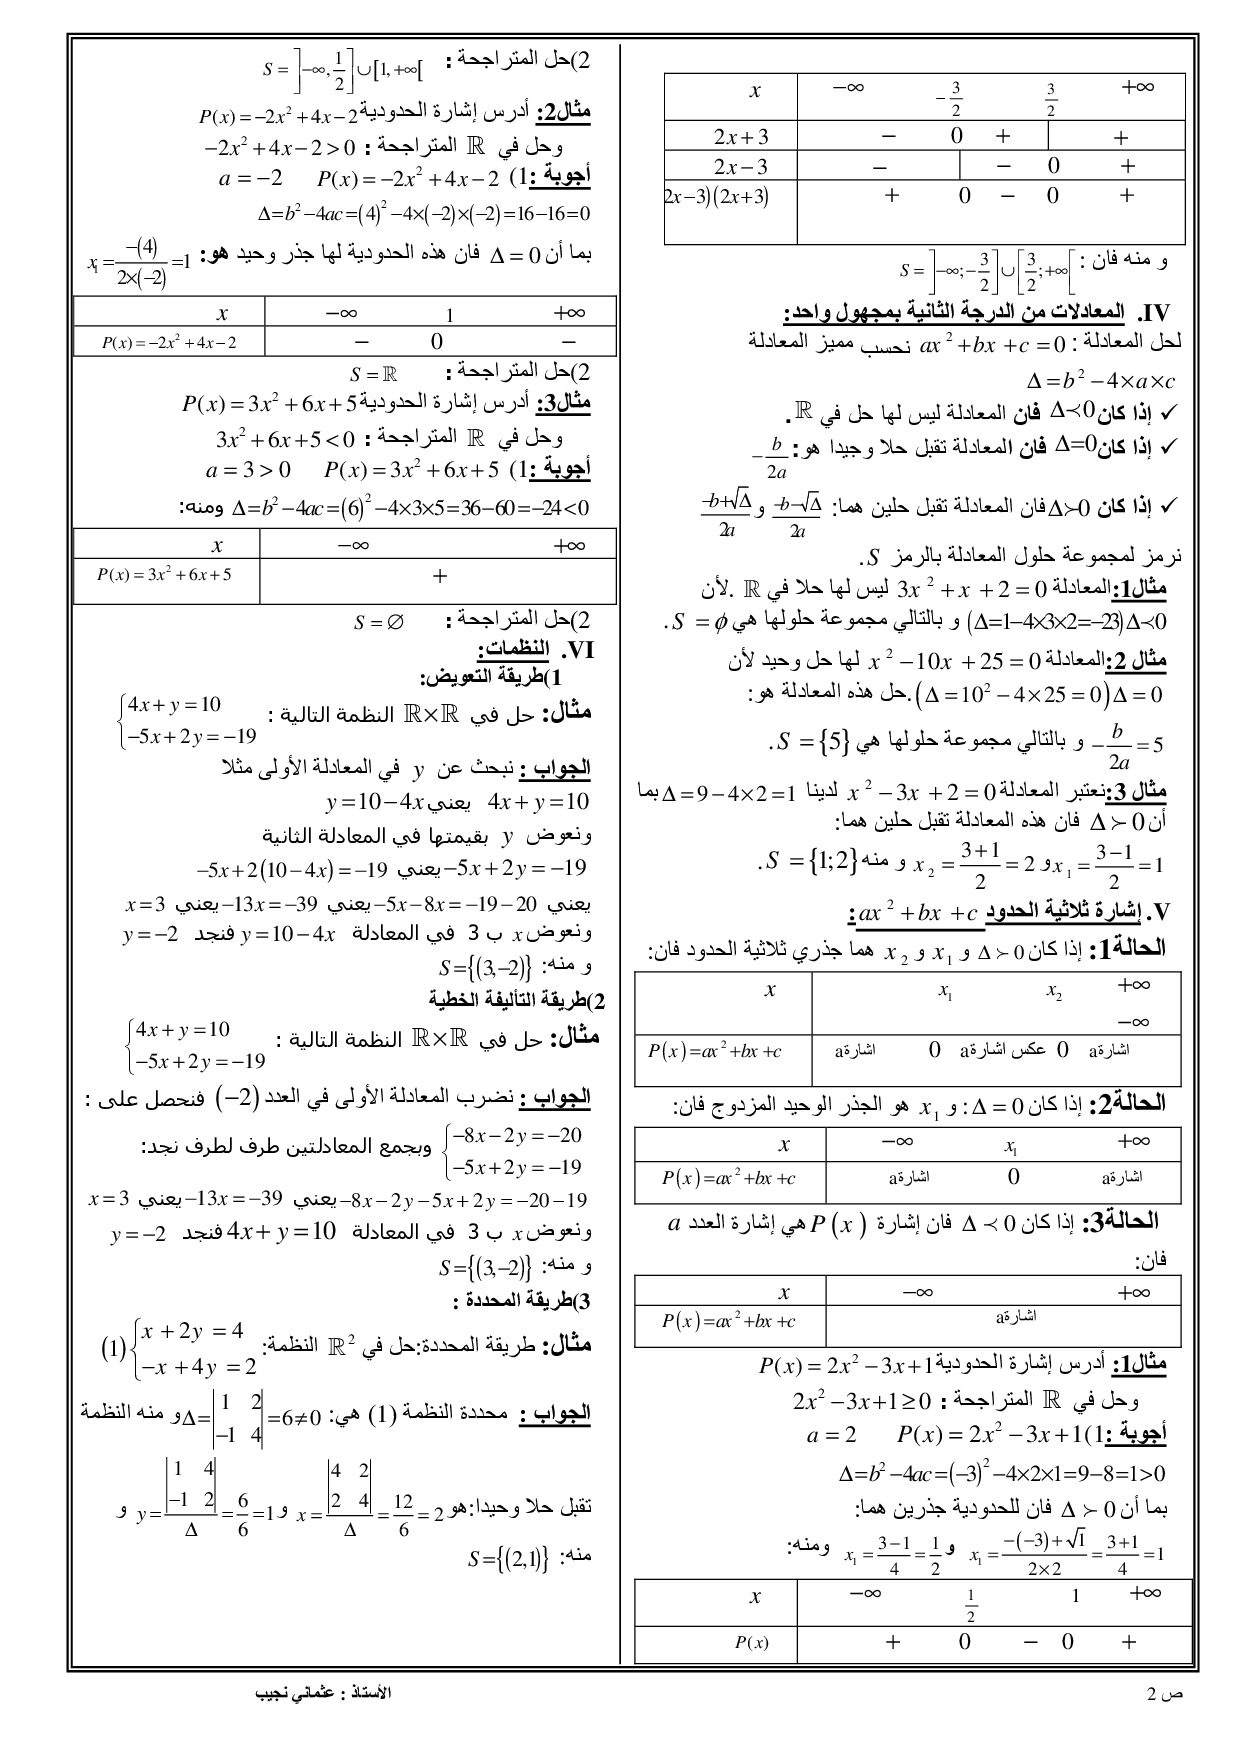 x −∞ −3/2 3/2 +∞
2x+3 − 0 + +
2x−3 − − 0 +
2x−3)(2x+3) + 0 − 0 +
و منه فان : S = ]−∞;−3/2] ∪ [3/2;+∞[
IV. المعادلات من الدرجة الثانية بمجهول واحد:
لحل المعادلة : ax² + bx + c = 0 نحسب مميز المعادلة
Δ = b² − 4×a×c
✓ إذا كان Δ≺0 فان المعادلة ليس لها حل في ℝ .
✓ إذا كان Δ=0 فان المعادلة تقبل حلا وحيدا هو: −b/2a
✓ إذا كان Δ≻0 فان المعادلة تقبل حلين هما: (−b−√Δ)/2a و (−b+√Δ)/2a
نرمز لمجموعة حلول المعادلة بالرمز S .
مثال1:المعادلة 3x² + x + 2 = 0 ليس لها حلا في ℝ .لأن
Δ≺0 (Δ=1−4×3×2=−23) و بالتالي مجموعة حلولها هي S = ϕ .
مثال 2:المعادلة x² −10x + 25 = 0 لها حل وحيد لأن
Δ = 0 (Δ = 10² − 4×25 = 0).حل هذه المعادلة هو:
−b/2a = 5 و بالتالي مجموعة حلولها هي S = {5} .
مثال 3:نعتبر المعادلة x² − 3x + 2 = 0 لدينا Δ = 9 − 4×2 = 1 بما
أن Δ ≻ 0 فان هذه المعادلة تقبل حلين هما:
x₁ = (3−1)/2 = 1 و x₂ = (3+1)/2 = 2 و منه S = {1;2} .
V. إشارة ثلاثية الحدود ax² + bx + c :
الحالة1: إذا كان Δ ≻ 0 و x₁ و x₂ هما جذري ثلاثية الحدود فان:
x x₁ x₂ +∞
−∞
P(x) = ax² + bx + c اشارةa 0 عكس اشارةa 0 اشارةa
الحالة2: إذا كان Δ = 0 : و x₁ هو الجذر الوحيد المزدوج فان:
x −∞ x₁ +∞
P(x) = ax² + bx + c اشارةa 0 اشارةa
الحالة3: إذا كان Δ ≺ 0 فان إشارة P(x) هي إشارة العدد a
فان:
x −∞ +∞
P(x) = ax² + bx + c اشارةa
مثال1: أدرس إشارة الحدودية P(x) = 2x² − 3x + 1
وحل في ℝ المتراجحة : 2x² − 3x + 1 ≥ 0
أجوبة :1) P(x) = 2x² − 3x + 1 a = 2
Δ = b² − 4ac = (−3)² − 4×2×1 = 9−8 = 1 > 0
بما أن Δ ≻ 0 فان للحدودية جذرين هما:
x₁ = (−(−3)+√1)/(2×2) = (3+1)/4 = 1 و x₁ = (3−1)/4 = 1/2 ومنه:
x −∞ 1/2 1 +∞
P(x) + 0 − 0 +
2)حل المتراجحة : S = ]−∞,1/2] ∪ [1,+∞[
مثال2: أدرس إشارة الحدودية P(x) = −2x² + 4x − 2
وحل في ℝ المتراجحة : −2x² + 4x − 2 > 0
أجوبة :1) P(x) = −2x² + 4x − 2 a = −2
Δ = b² − 4ac = (4)² − 4×(−2)×(−2) = 16−16 = 0
بما أن Δ = 0 فان هذه الحدودية لها جذر وحيد هو: x₁ = −(4)/(2×(−2)) = 1
x −∞ 1 +∞
P(x) = −2x² + 4x − 2 − 0 −
2)حل المتراجحة : S = ℝ
مثال3: أدرس إشارة الحدودية P(x) = 3x² + 6x + 5
وحل في ℝ المتراجحة : 3x² + 6x + 5 < 0
أجوبة :1) P(x) = 3x² + 6x + 5 a = 3 > 0
Δ = b² − 4ac = (6)² − 4×3×5 = 36−60 = −24 < 0 ومنه:
x −∞ +∞
P(x) = 3x² + 6x + 5 +
2)حل المتراجحة : S = ∅
VI. النظمات:
1)طريقة التعويض:
مثال: حل في ℝ×ℝ النظمة التالية : {4x + y = 10
−5x + 2y = −19
الجواب : نبحث عن y في المعادلة الأولى مثلا
4x + y = 10 يعني y = 10 − 4x
ونعوض y بقيمتها في المعادلة الثانية
−5x + 2y = −19 يعني −5x + 2(10 − 4x) = −19
يعني −5x − 8x = −19 − 20 يعني −13x = −39 يعني x = 3
ونعوض x ب 3 في المعادلة y = 10 − 4x فنجد y = −2
و منه: S = {(3,−2)}
2)طريقة التأليفة الخطية
مثال: حل في ℝ×ℝ النظمة التالية : {4x + y = 10
−5x + 2y = −19
الجواب : نضرب المعادلة الأولى في العدد (−2) فنحصل على :
{−8x − 2y = −20
−5x + 2y = −19 وبجمع المعادلتين طرف لطرف نجد:
−8x − 2y − 5x + 2y = −20 − 19 يعني −13x = −39 يعني x = 3
ونعوض x ب 3 في المعادلة 4x + y = 10 فنجد y = −2
و منه: S = {(3,−2)}
3)طريقة المحددة :
مثال: طريقة المحددة:حل في ℝ² النظمة: (1) {x + 2y = 4
−x + 4y = 2
الجواب : محددة النظمة (1) هي: Δ = |1 2; −1 4| = 6 ≠ 0 و منه النظمة
تقبل حلا وحيدا:هو x = |4 2; 2 4|/Δ = 12/6 = 2 و y = |1 4; −1 2|/Δ = 6/6 = 1 و
منه: S = {(2,1)}
ص 2
الأستاذ : عثماني نجيب